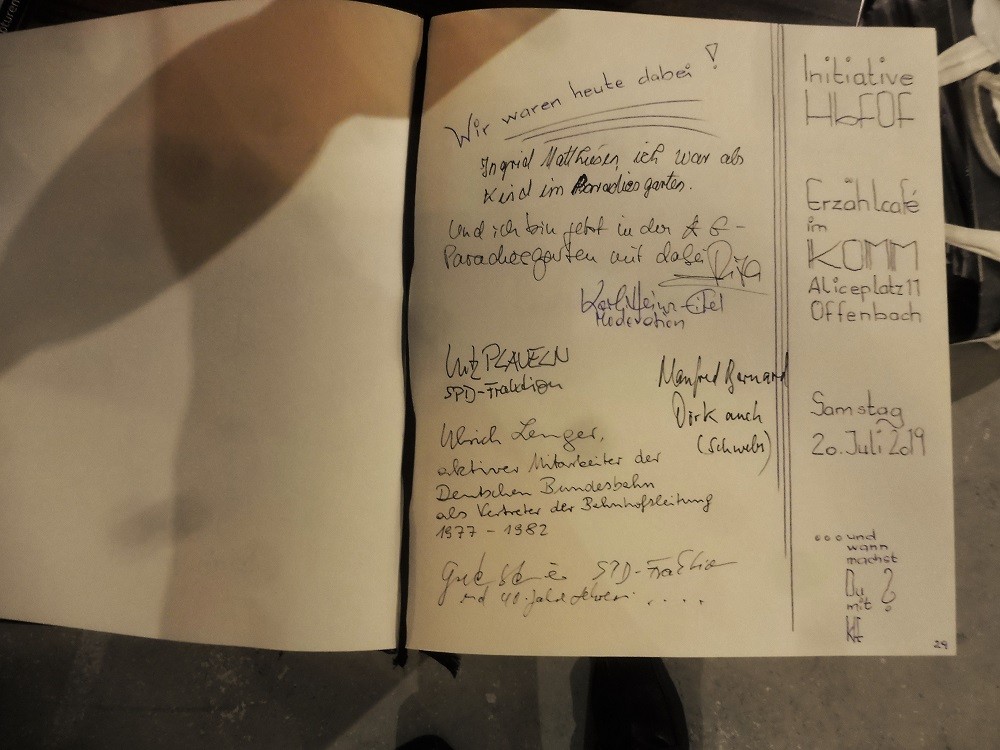 Wir waren heute dabei!
Ingrid Matthiesen, ich war als
Kind im Paradiesgarten.
Und ich bin jetzt in der AG-
Paradiesgarten mit dabei
Karl-Heinz Eitel
Moderation
SPD-Fraktion
Manfred Bernard
Dirk auch
Ulrich Lenger,
aktiver Mitarbeiter der
Deutschen Bundesbahn
als Vertreter der Bahnhofsleitung
1977 - 1982
SPD-Fraktion
Initiative
HbfOF
Erzählcafé
im
KOMM
Aliceplatz 11
Offenbach
Samstag
20. Juli 2019
...und
wann
machst
Du ?
mit
KE
29